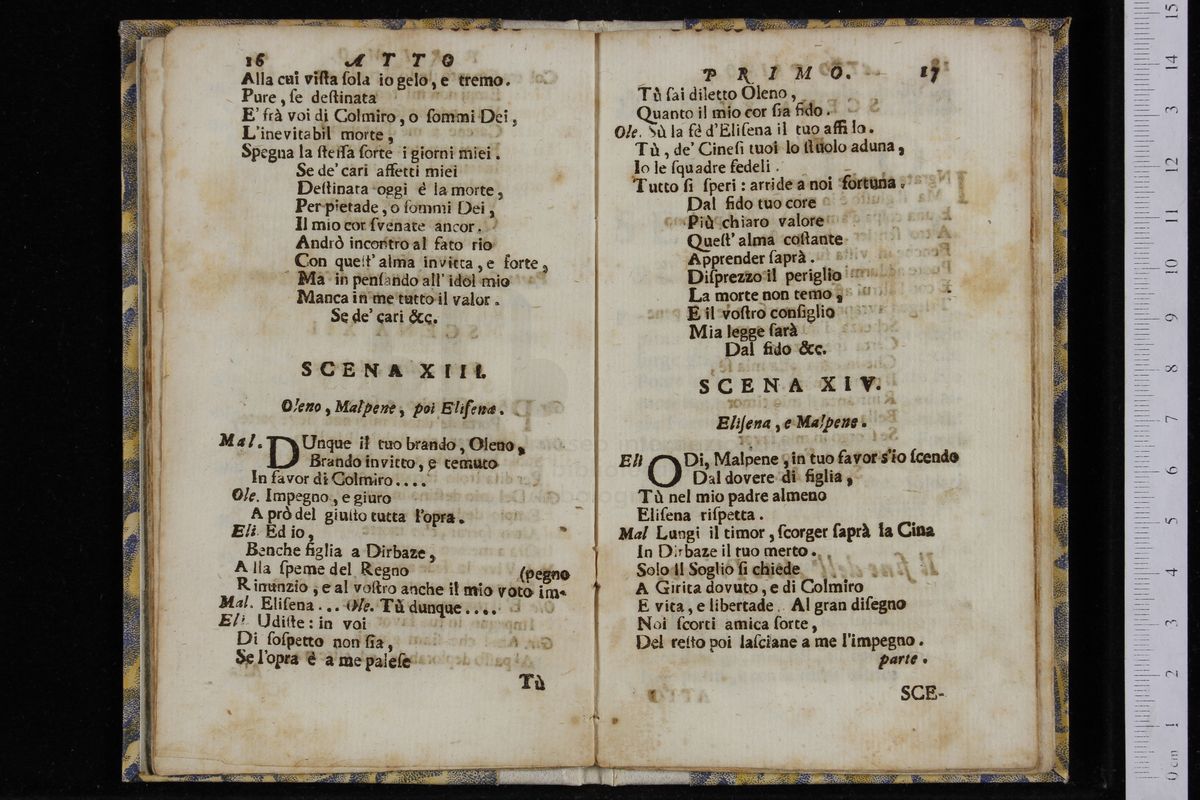 16 ATTO
Alla cui viſta ſola io gelo, e tremo.
Pure, ſe deſtinata
E' frà voi di Colmiro, o ſommi Dei,
L'inevitabil morte,
Spegna la ſteſſa ſorte i giorni miei.
Se de' cari affetti miei
Deſtinata oggi è la morte,
Per pietade, o ſommi Dei,
Il mio cor ſvenate ancor.
Andrò incontro al fato rio
Con queſt' alma invitta, e forte,
Ma in penſando all' idol mio
Manca in me tutto il valor.
Se de' cari &c.
SCENA XIII.
Oleno, Malpene, poi Eliſena.
Mal. DUnque il tuo brando, Oleno,
Brando invitto, e temuto
In favor di Colmiro....
Ole. Impegno, e giuro
A prò del giuſto tutta l'opra.
Eli. Ed io,
Benche figlia a Dirbaze,
Alla ſpeme del Regno (pegno
Rinunzio, e al voſtro anche il mio voto im-
Mal. Eliſena... Ole. Tù dunque....
Eli. Udiſte: in voi
Di ſoſpetto non ſia,
Se l'opra è a me paleſe
Tù
PRIMO. 17
Tù ſai diletto Oleno,
Quanto il mio cor ſia fido.
Ole. Sù la fè d'Eliſena il tuo affi lo.
Tù, de' Cineſi tuoi lo ſtuolo aduna,
Io le ſquadre fedeli.
Tutto ſi ſperi: arride a noi fortuna.
Dal fido tuo core
Più chiaro valore
Queſt' alma coſtante
Apprender ſaprà.
Diſprezzo il periglio
La morte non temo,
E il voſtro conſiglio
Mia legge ſarà
Dal fido &c.
SCENA XIV.
Eliſena, e Malpene.
Eli ODi, Malpene, in tuo favor s'io ſcendo
Dal dovere di figlia,
Tù nel mio padre almeno
Eliſena riſpetta.
Mal Lungi il timor, ſcorger ſaprà la Cina
In Dirbaze il tuo merto.
Solo il Soglio ſi chiede
A Girita dovuto, e di Colmiro
E vita, e libertade. Al gran diſegno
Noi ſcorti amica ſorte,
Del reſto poi laſciane a me l'impegno.
parte.
SCE-
0 cm 1 2 3 4 5 6 7 8 9 10 11 12 13 14 15